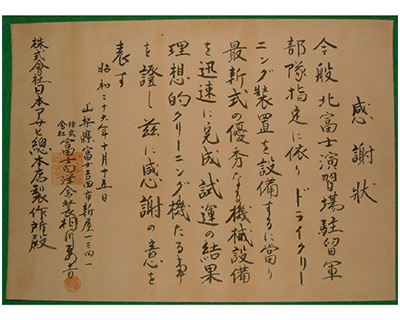 感謝狀
今般北富士演習場駐留軍
部隊指定に依りドライクリー
ニング裝置を設備するに當り
最新式の優秀なる機械設備
を迅速に完成試運の結果
理想的クリーニング機たる事
を證し茲に感謝の意を
表す
昭和二十六年十月十五日
山梨縣富士吉田市新屋一三四一
株式會社富士
社長相川
株式會社日本アサヒ總本店製作所殿